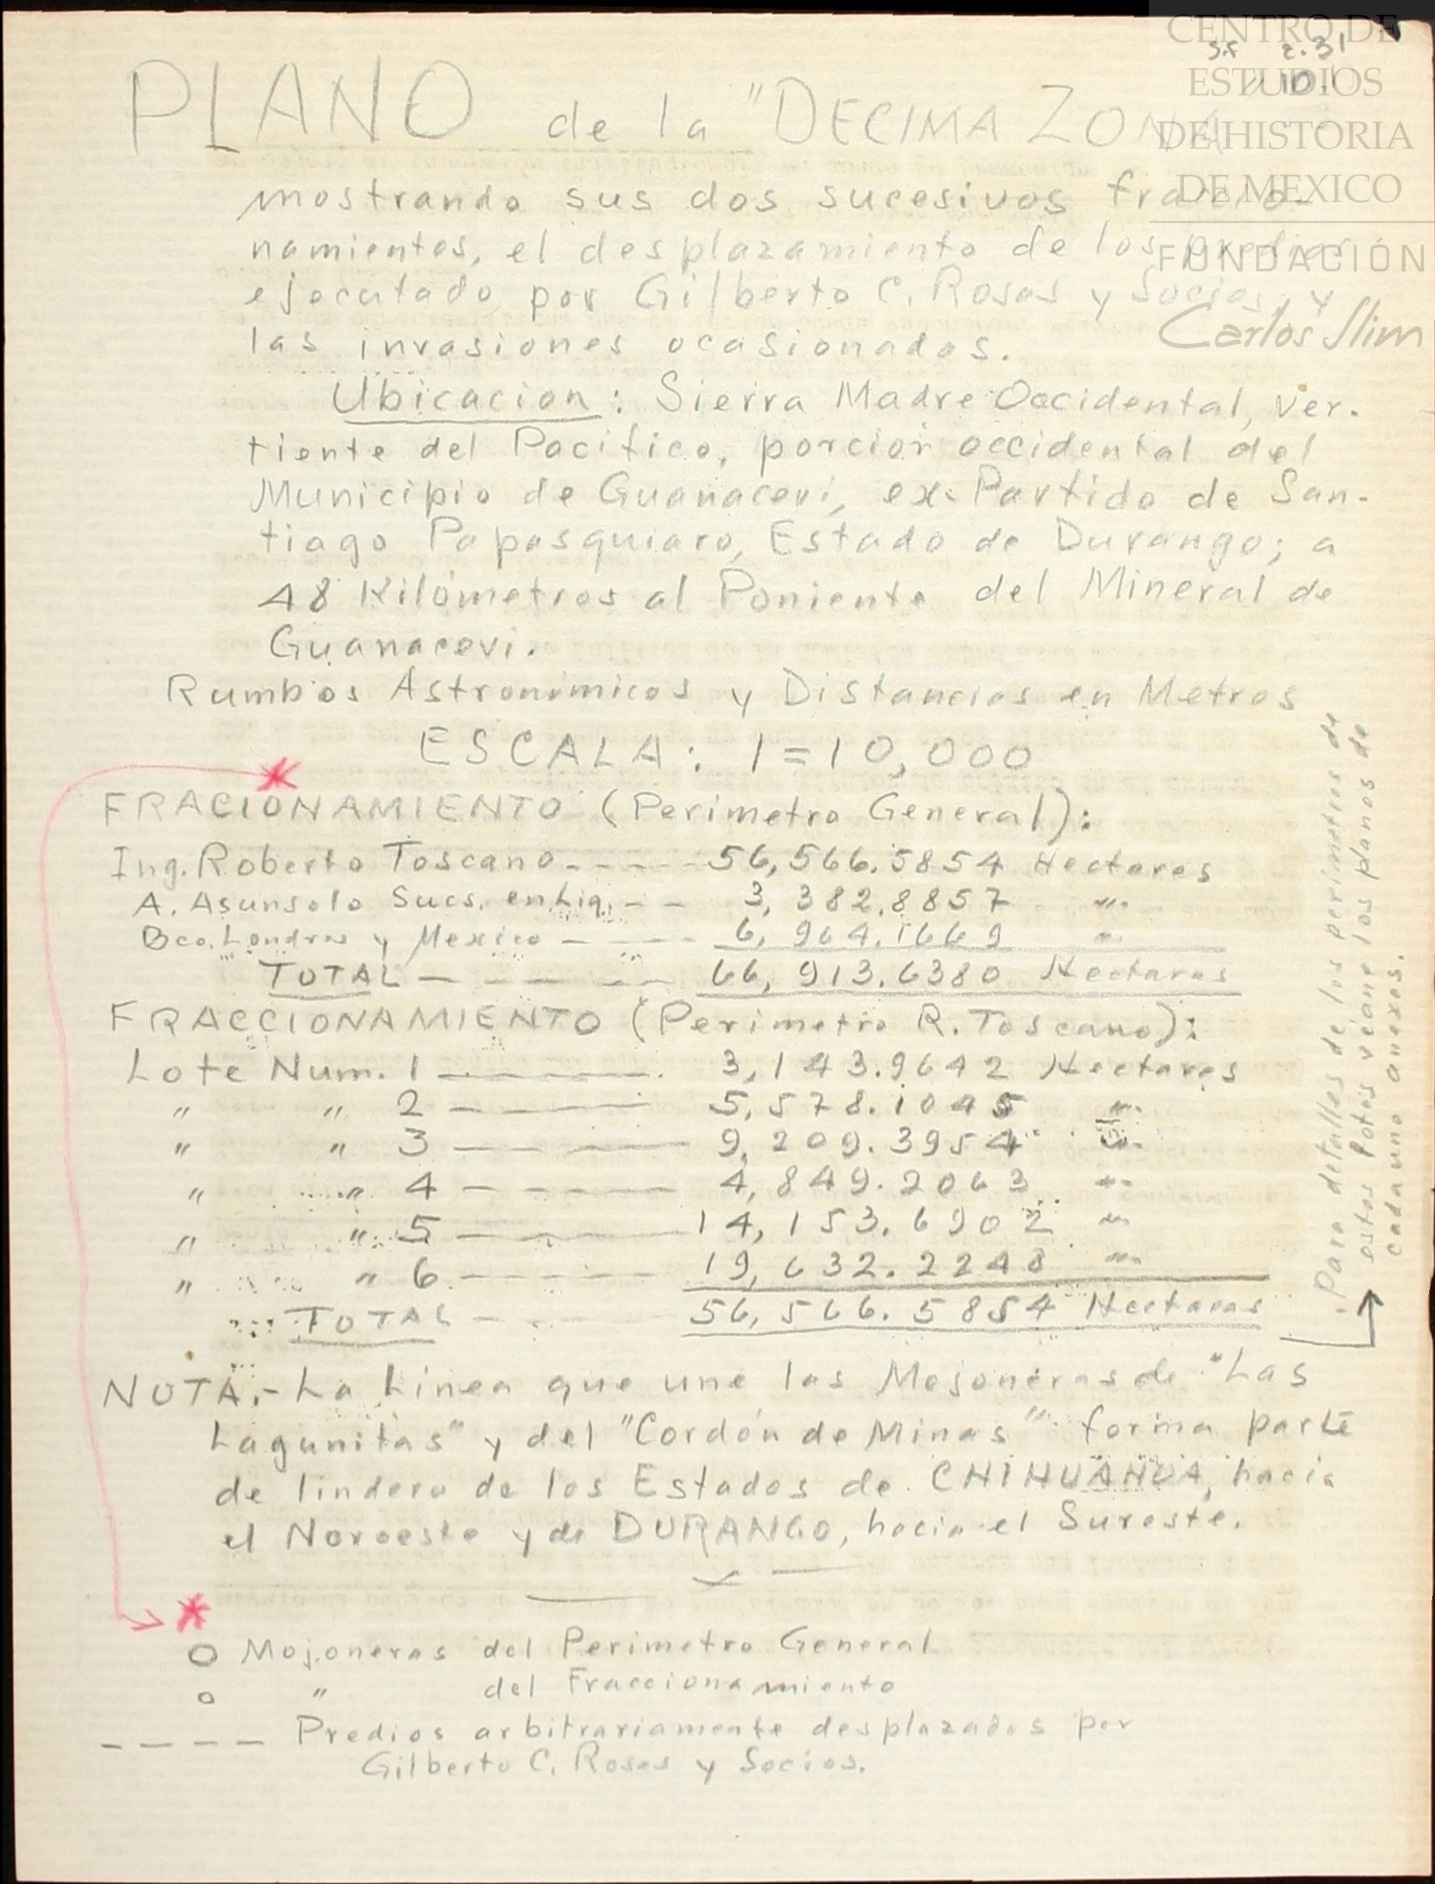 CENTRO DE
ESTUDIOS
DE HISTORIA
DE MEXICO
FUNDACIÓN
Carlos Slim
PLANO de la "DECIMA ZONA
mostrando sus dos sucesivos fraccio-
namientos, el desplazamiento de los predios
ejecutado por Gilberto C. Rosas y Socios, y
las invasiones ocasionadas.
Ubicacion: Sierra Madre Occidental, Ver-
tiente del Pacifico, porción occidental del
Municipio de Guanacevi, ex-Partido de San-
tiago Papasquiaro, Estado de Durango; a
48 Kilómetros al Poniente del Mineral de
Guanacevi.
Rumbos Astronómicos y Distancias en Metros
ESCALA: 1=10,000
FRACIONAMIENTO (Perimetro General):
Ing. Roberto Toscano---- 56,566.5854 Hectares
A. Asunsolo Sucs. en Liq. -- 3,382.8857 "
Bco. Londres y Mexico ---- 6,964.1669 "
TOTAL ---- 66,913.6380 Hectares
FRACCIONAMIENTO (Perimetro R. Toscano):
Lote Num. 1 ---- 3,143.9642 Hectares
" " 2 ---- 5,578.1045 "
" " 3 ---- 9,209.3954 "
" " 4 ---- 4,849.2063 "
" " 5 ---- 14,153.6902 "
" " 6 ---- 19,632.2248 "
TOTAL -- 56,566.5854 Hectares
Para detalles de los perimetros de
estos lotes véanse los planos de
cada uno anexos.
NOTA.- La Linea que une las Mojoneras de "Las
Lagunitas" y del "Cordón de Minas" forma parte
de lindero de los Estados de CHIHUAHUA, hacia
el Noroeste y de DURANGO, hacia el Sureste.
O Mojoneras del Perimetro General
o " del Fraccionamiento
---- Predios arbitrariamente desplazados por
Gilberto C. Rosas y Socios.